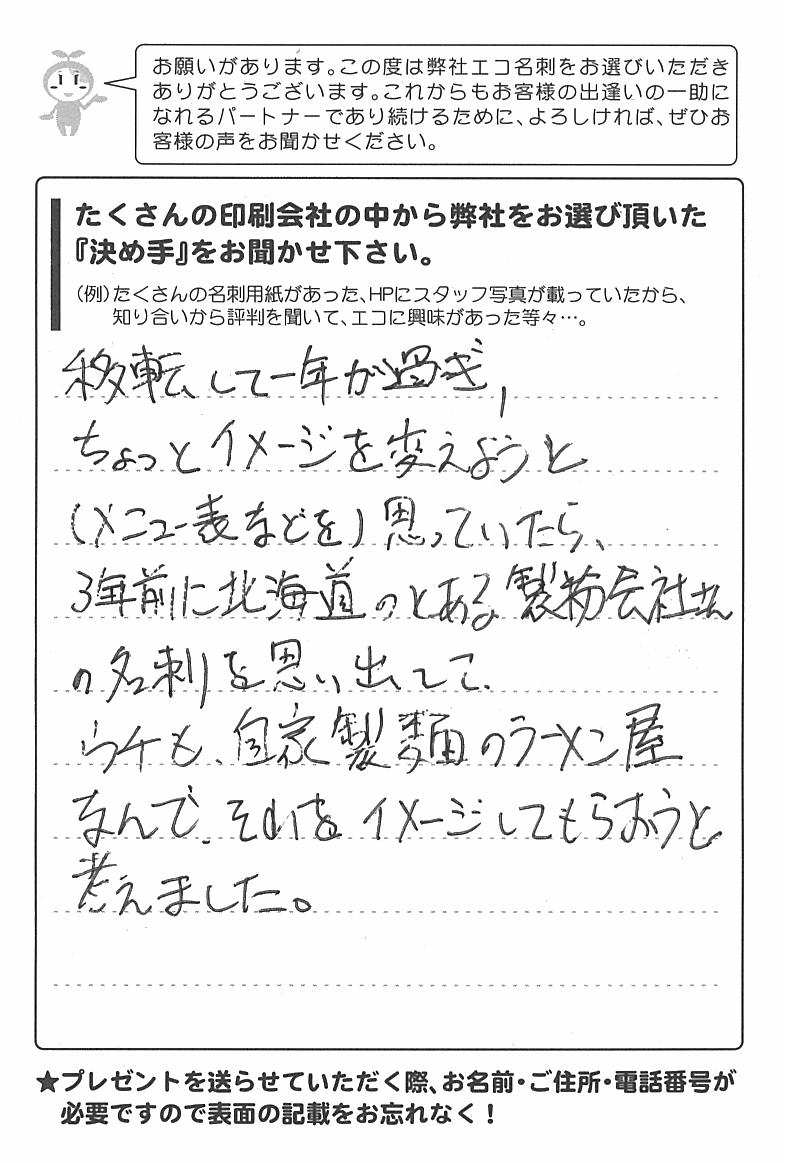 お願いがあります。この度は弊社エコ名刺をお選びいただき
ありがとうございます。これからもお客様の出逢いの一助に
なれるパートナーであり続けるために、よろしければ、ぜひお
客様の声をお聞かせください。
たくさんの印刷会社の中から弊社をお選び頂いた
『決め手』をお聞かせ下さい。
（例）たくさんの名刺用紙があった、HPにスタッフ写真が載っていたから、
知り合いから評判を聞いて、エコに興味があった等々…。
移転して一年が過ぎ,
ちょっとイメージを変えようと
(メニュー表などを) 思っていたら、
3年前に北海道のとある製粉会社さん
の名刺を思い出して、
ウチも、自家製麺のラーメン屋
なんで、それをイメージしてもらおうと
考えました。
★プレゼントを送らせていただく際、お名前・ご住所・電話番号が
必要ですので表面の記載をお忘れなく！